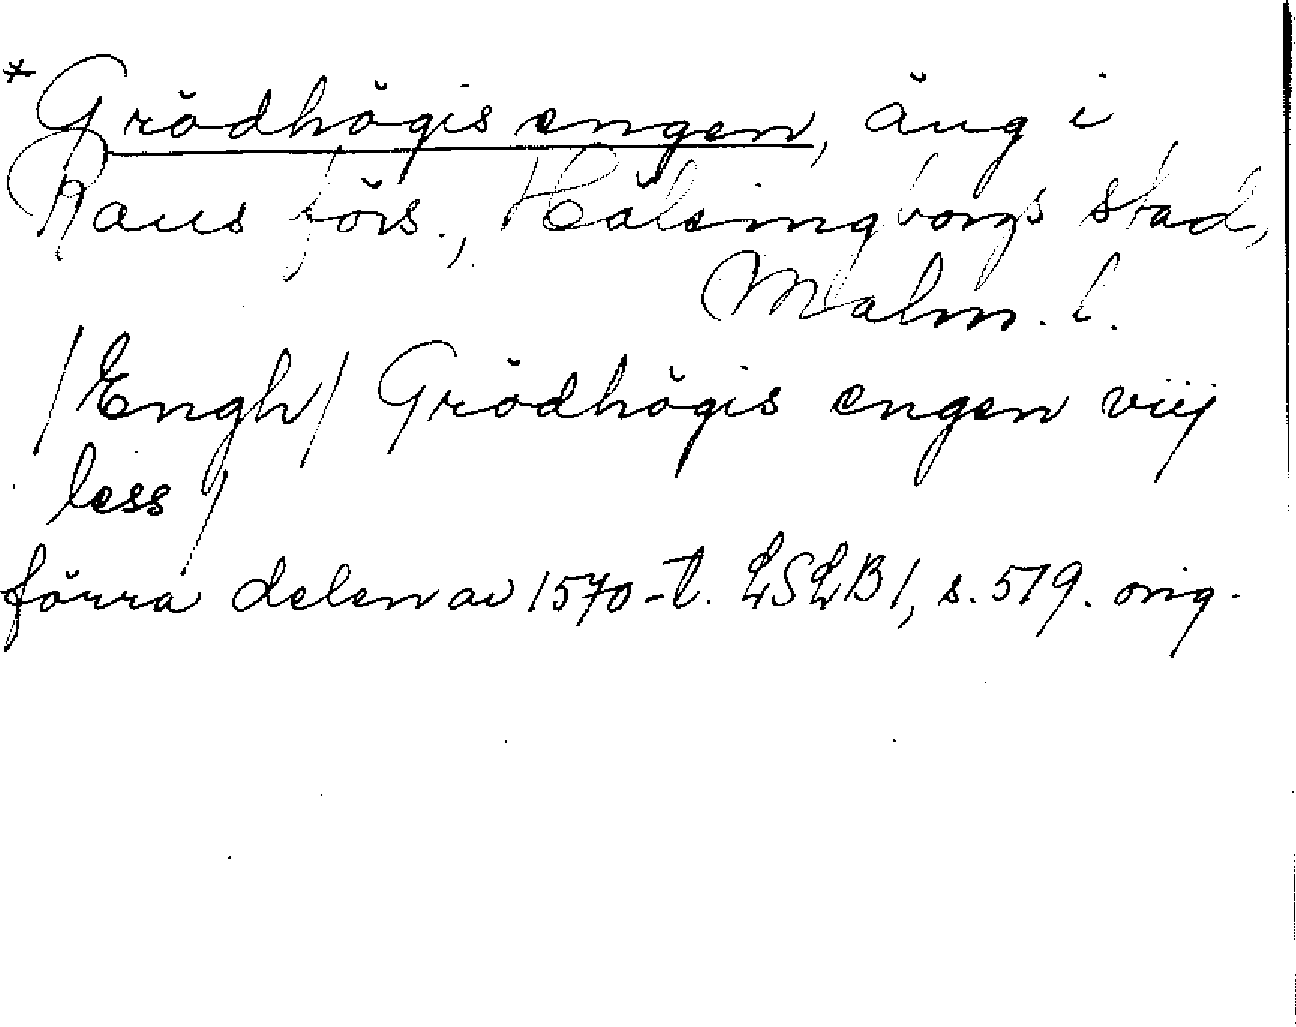 * Grödhögis engen, äng i
Raus förs., Hälsingborgs stad,
Malm. l.
/Engh/ Grödhögis engen viij
less /
förra delen av 1570-t. LSLB 1, s. 519. orig.